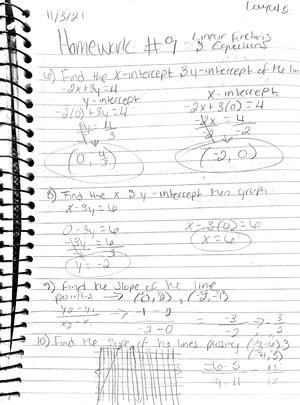 11/3/21
Homework #9 - Linear Functions & Equations
6) Find the x-intercept & y-intercept of the line
-2x+3y=4
y-intercept
x-intercept
-2(0)+3y=4
-2x+3(0)=4
3y=4
3
(0, 4/3)
-2x=4
-2 -2
(-2, 0)
8) Find the x & y-intercept then graph
x-3y=6
0-3y=6
-3y=6
y=-2
x-3(0)=6
x=6
9) Find the slope of the line
points → (0,2), (-2,-1)
y2-y1
x2-x1
→ -1-2
-2-0
= -3
-2
→ 3
2
10) Find the slope of the lines passing